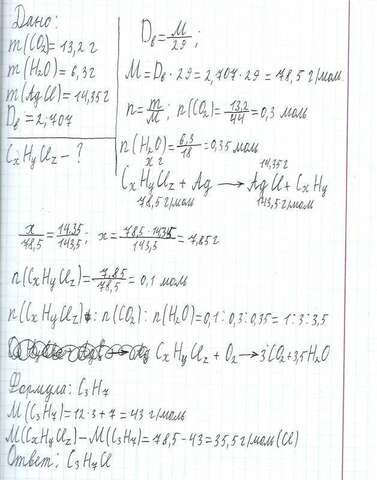 Дано:
m(CO₂)=13,2 г
m(H₂O)=6,3 г
m(AgCl)=14,35 г
Dв=2,707
CxHyClz – ?
Dв = M/29;
M=Dв·29=2,707·29=78,5 г/моль
n=m/M; n(CO₂)=13,2/44=0,3 моль
n(H₂O)=6,3/18=0,35 моль
x г 14,35г
CxHyClz + Ag → AgCl + CxHy
78,5 г/моль 143,5 г/моль
x/78,5=14,35/143,5; x=78,5·14,35/143,5=7,85 г
n(CxHyClz)=7,85/78,5=0,1 моль
n(CxHyClz): n(CO₂): n(H₂O)=0,1:0,3:0,35=1:3:3,5
CxHyClz + O₂ → 3CO₂+3,5H₂O
Формула: C₃H₇
M(C₃H₇)=12·3+7=43 г/моль
M(CxHyClz)–M(C₃H₇)=78,5–43=35,5 г/моль (Cl)
Ответ: C₃H₇Cl